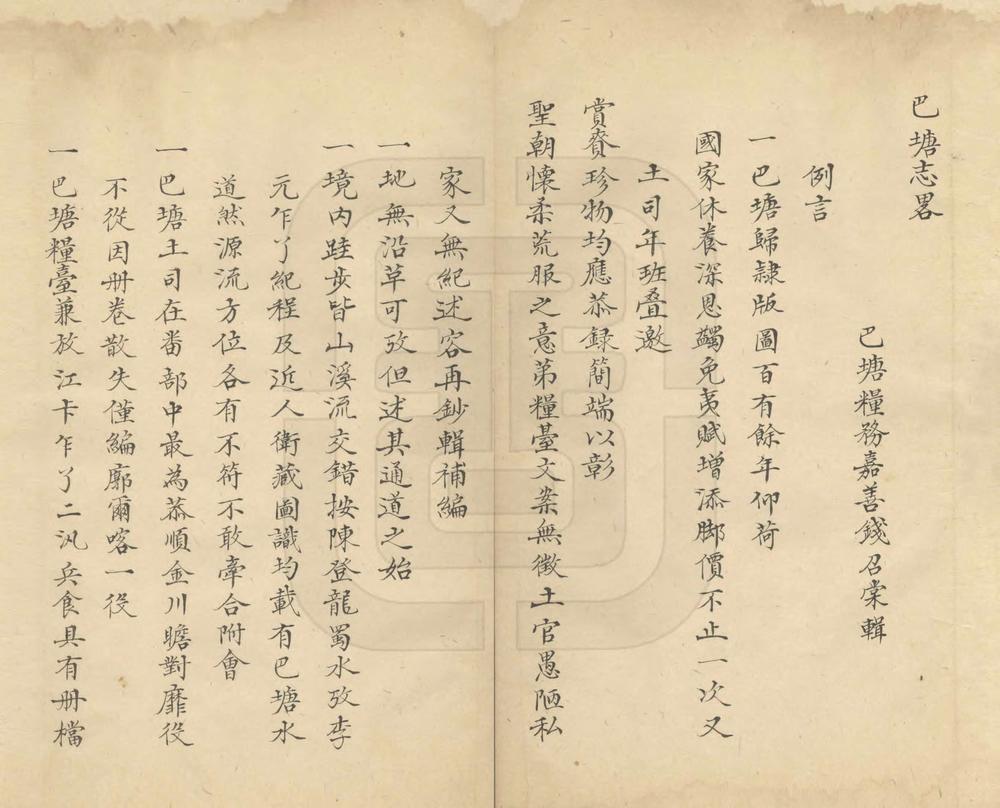 巴塘志畧
巴塘糧務嘉善錢召棠輯
例言
一巴塘歸隸版圖百有餘年仰荷
國家休養深恩蠲免夷賦增添脚價不止一次又
土司年班叠邀
賞賚珍物均應恭録簡端以彰
聖朝懷柔荒服之意第糧臺文案無徵土官愚陋私
家又無紀述容再鈔輯補編
一地無沿革可攷但述其通道之始
一境内跬步皆山溪流交錯按陳登龍蜀水攷李
元乍丫紀程及近人衛藏圖識均載有巴塘水
道然源流方位各有不符不敢牽合附會
一巴塘土司在番部中最為恭順金川瞻對靡役
不從因册卷散失僅編廓爾喀一役
一巴塘糧臺兼放江卡乍丫二汛兵食具有册檔